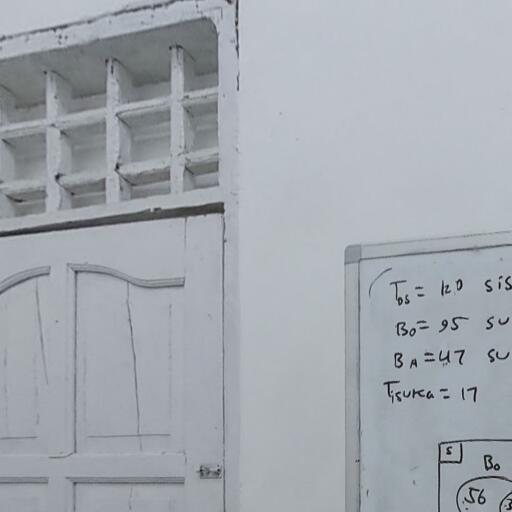 Tos = 120 sis
Bo = 95 su
BA = 47 su
Tisuka = 17
S
Bo
56